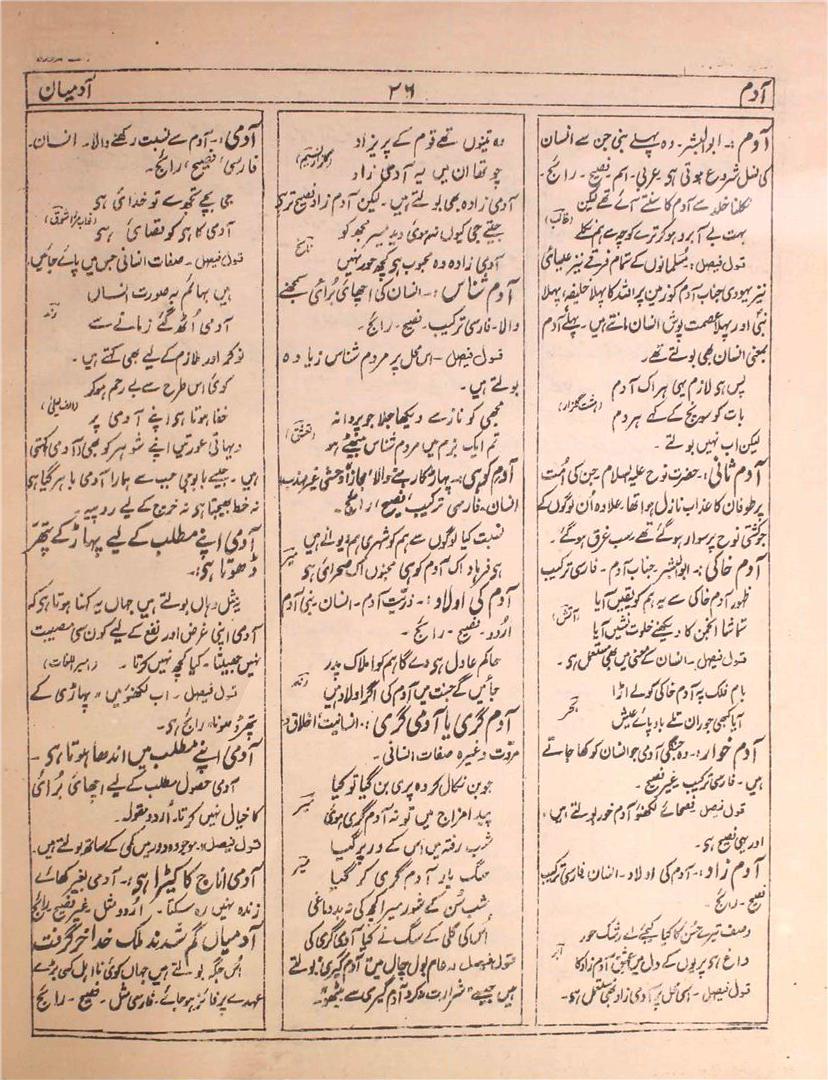 آدم
۲۶
آدمیان
آدم :۔ ابوالبشر۔ وہ پہلے نبی جن سے انسان
کی نسل شروع ہوتی ہو عربی۔ اسم فصیح۔ رائج۔
نکلنا خلد سے آدم کا سنتے آئے تھے لیکن
بہت بے آبرو ہو کر ترے کوچے سے ہم نکلے
(غالب)
قول فیصل: مسلمانوں کے تمام فرقے نیز عیسائی
نیز یہودی جناب آدم کو زمین پر اللہ کا پہلا خلیفہ، پہلا
نبی اور پہلا عصمت پوش انسان مانتے ہیں۔ پہلے آدم
بمعنی انسان بھی بولتے تھے۔
پس ہی لازم یہی ہر اک آدم
بات کو سوچ کے کہے ہر دم
(ہشت گلزار)
لیکن اب نہیں بولتے۔
آدم ثانی :۔ حضرت نوح علیہ السلام جن کی اُمت
پر طوفان کا عذاب نازل ہوا تھا۔ علاوہ اُن لوگوں کے
جو کشتی نوح پر سوار ہو گئے تھے سب غرق ہو گئے۔
آدم خاکی :۔ ابوالبشر جناب آدم۔ فارسی ترکیب
ظہور آدم خاکی سے یہ ہم کو یقیں آیا
تماشا انجمن کا دیکھنے خلوت نشیں آیا
آتش
قول فیصل۔ انسان کے معنی میں بھی مستعمل ہی۔
بام فلک پہ آدم خاکی کو لے اڑا
آیا کبھی جو ران تلے باد پائے عیش
بحر
آدم خوار :۔ وہ جنگلی آدمی جو انسان کو کھا جاتے
ہیں۔ فارسی ترکیب غیر فصیح۔
قول فیصل۔ فصحائے لکھنؤ آدم خور بولتے ہیں،
اور یہی فصیح ہی۔
آدم زاد :۔ آدم کی اولاد۔ انسان۔ فارسی ترکیب
فصیح۔ رائج۔
وصف تیرے حسن کا کیا کیجئے اے رشک حور
داغ ہی پریوں کے دل میں عشق آدم زاد کا
قول فیصل۔ اسی محل پر آدمی زاد بھی مستعمل ہی۔
وہ تینوں تھے قوم کے پریزاد
چوتھا ان میں یہ آدمی زاد
(گلزار نسیم)
آدمی زادہ بھی بولتے ہیں۔ لیکن آدم زاد فصیح تر ہی
جیتے جی کیوں نہ ہوئی دید میسر مجھ کو
آدمی زادہ وہ محبوب ہی کچھ حور نہیں
ناسخ
آدم شناس :۔ انسان کی اچھائی بُرائی سمجھنے
والا۔ فارسی ترکیب۔ فصیح۔ رائج۔
قول فیصل۔ اس محل پر مردم شناس زیادہ
بولتے ہیں۔
مجھی کو ناز سے دیکھا جلا جو پروانہ
تم ایک بزم میں مردم شناس بیٹھے ہو
(تعشق)
آدم کوہی :۔ پہاڑ کا رہنے والا۔ مجازاً وحشی غیر مہذب
انسان۔ فارسی ترکیب، فصیح، رائج۔
نسبت کیا لوگوں سے ہم کو شہری ہیں دیوانے ہیں
ہی فرہاد اک آدم کوہی مجنوں اک صحرائی ہی
میر
آدم کی اولاد :۔ ذریت آدم۔ انسان۔ بنی آدم
اُردو۔ فصیح۔ رائج۔
حاکم عادل ہی دے گا ہم کو املاک پدر
جائیں گے جنت میں آدم کی اگر اولاد ہیں
رند
آدم گری یا آدمی گری :۔ انسانیت، اخلاق،
مروّت وغیرہ صفات انسانی۔
جوبن نکال کر وہ پری بن گیا تو کیا
پیدا مزاج میں تو نہ آدم گری ہوئی
شرب رفتہ میں اس کے در پر گیا
سگ یار آدم گری کر گیا
میر
شب سُن کے شور میرا کچھ کی نہ بد دماغی
اُس کی گلی کے سگ نے کیا آدمی گری کی
قول فیصل۔ عام بول چال میں آدم گیری زیادہ بولتے
ہیں جیسے "شرارت نہ کرو آدم گیری سے بیٹھو"۔
آدمی :۔ آدم سے نسبت رکھنے والا۔ انسان۔
فارسی، فصیح، رائج۔
جی بچے تجھ سے تو خدائی ہی
آدمی کا ہی کو قصائی ہی
قول فیصل۔ صفات انسانی جس میں پائے جائیں۔
ہیں بہائم بہ صورت انساں
آدمی اُٹھ گئے زمانے سے
رند
نوکر اور ملازم کے لیے بھی کہتے ہیں۔
کوئی اس طرح سے بے رحم ہو کر
خفا ہوتا ہی اپنے آدمی پر
(الف لیلیٰ)
دیہاتی عورتیں اپنے شوہر کو بھی آدمی کہتی
ہیں۔ جیسے بابوجی جب سے ہمارا آدمی باہر گیا ہی
نہ خط بھیجتا ہی نہ خرچ کے لیے روپیہ۔
آدمی اپنے مطلب کے لیے پہاڑ کے پتھر
ڈھوتا ہی :۔
یہ مثل وہاں بولتے ہیں جہاں یہ کہنا ہوتا ہی کہ
آدمی اپنی غرض اور نفع کے لیے کون سی مصیبت
نہیں جھیلتا۔ کیا کچھ نہیں کرتا۔ (امیر اللغات)
قول فیصل۔ اب لکھنؤ میں "پہاڑی کے
پتھر ڈھونا، رائج ہی۔
آدمی اپنے مطلب میں اندھا ہوتا ہی۔
آدمی حصول مطلب کے لیے اچھائی بُرائی
کا خیال نہیں کرتا۔ اُردو مقولہ۔
قول فیصل۔ موجودہ دور میں کمی کے ساتھ بولتے ہیں۔
آدمی اناج کا کیڑا ہی :۔ آدمی بغیر کھائے
زندہ نہیں رہ سکتا۔ اُردو مثل غیر فصیح رائج
آدمیاں گم شدند ملک خدا خر گرفت
اُس جگہ بولتے ہیں جہاں کوئی نا اہل کسی بڑے
عہدے پر فائز ہو جائے۔ فارسی مثل۔ فصیح۔ رائج